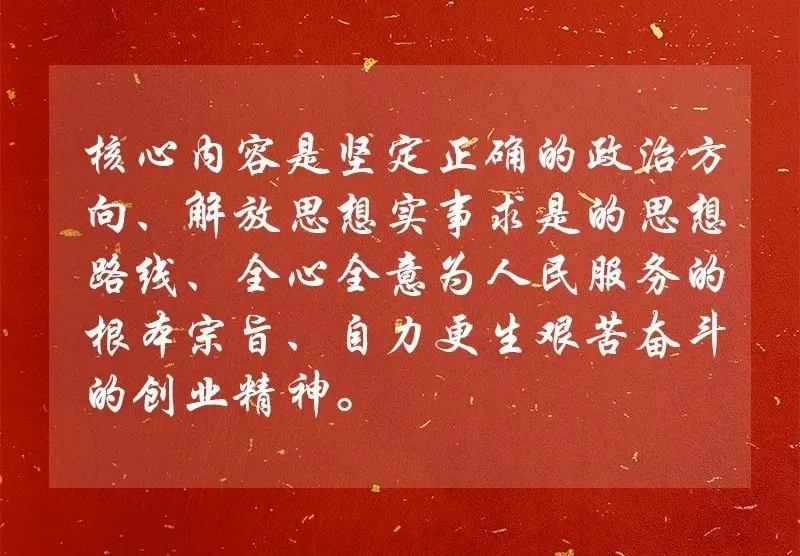 核心内容是坚定正确的政治方
向、解放思想实事求是的思想
路线、全心全意为人民服务的
根本宗旨、自力更生艰苦奋斗
的创业精神。